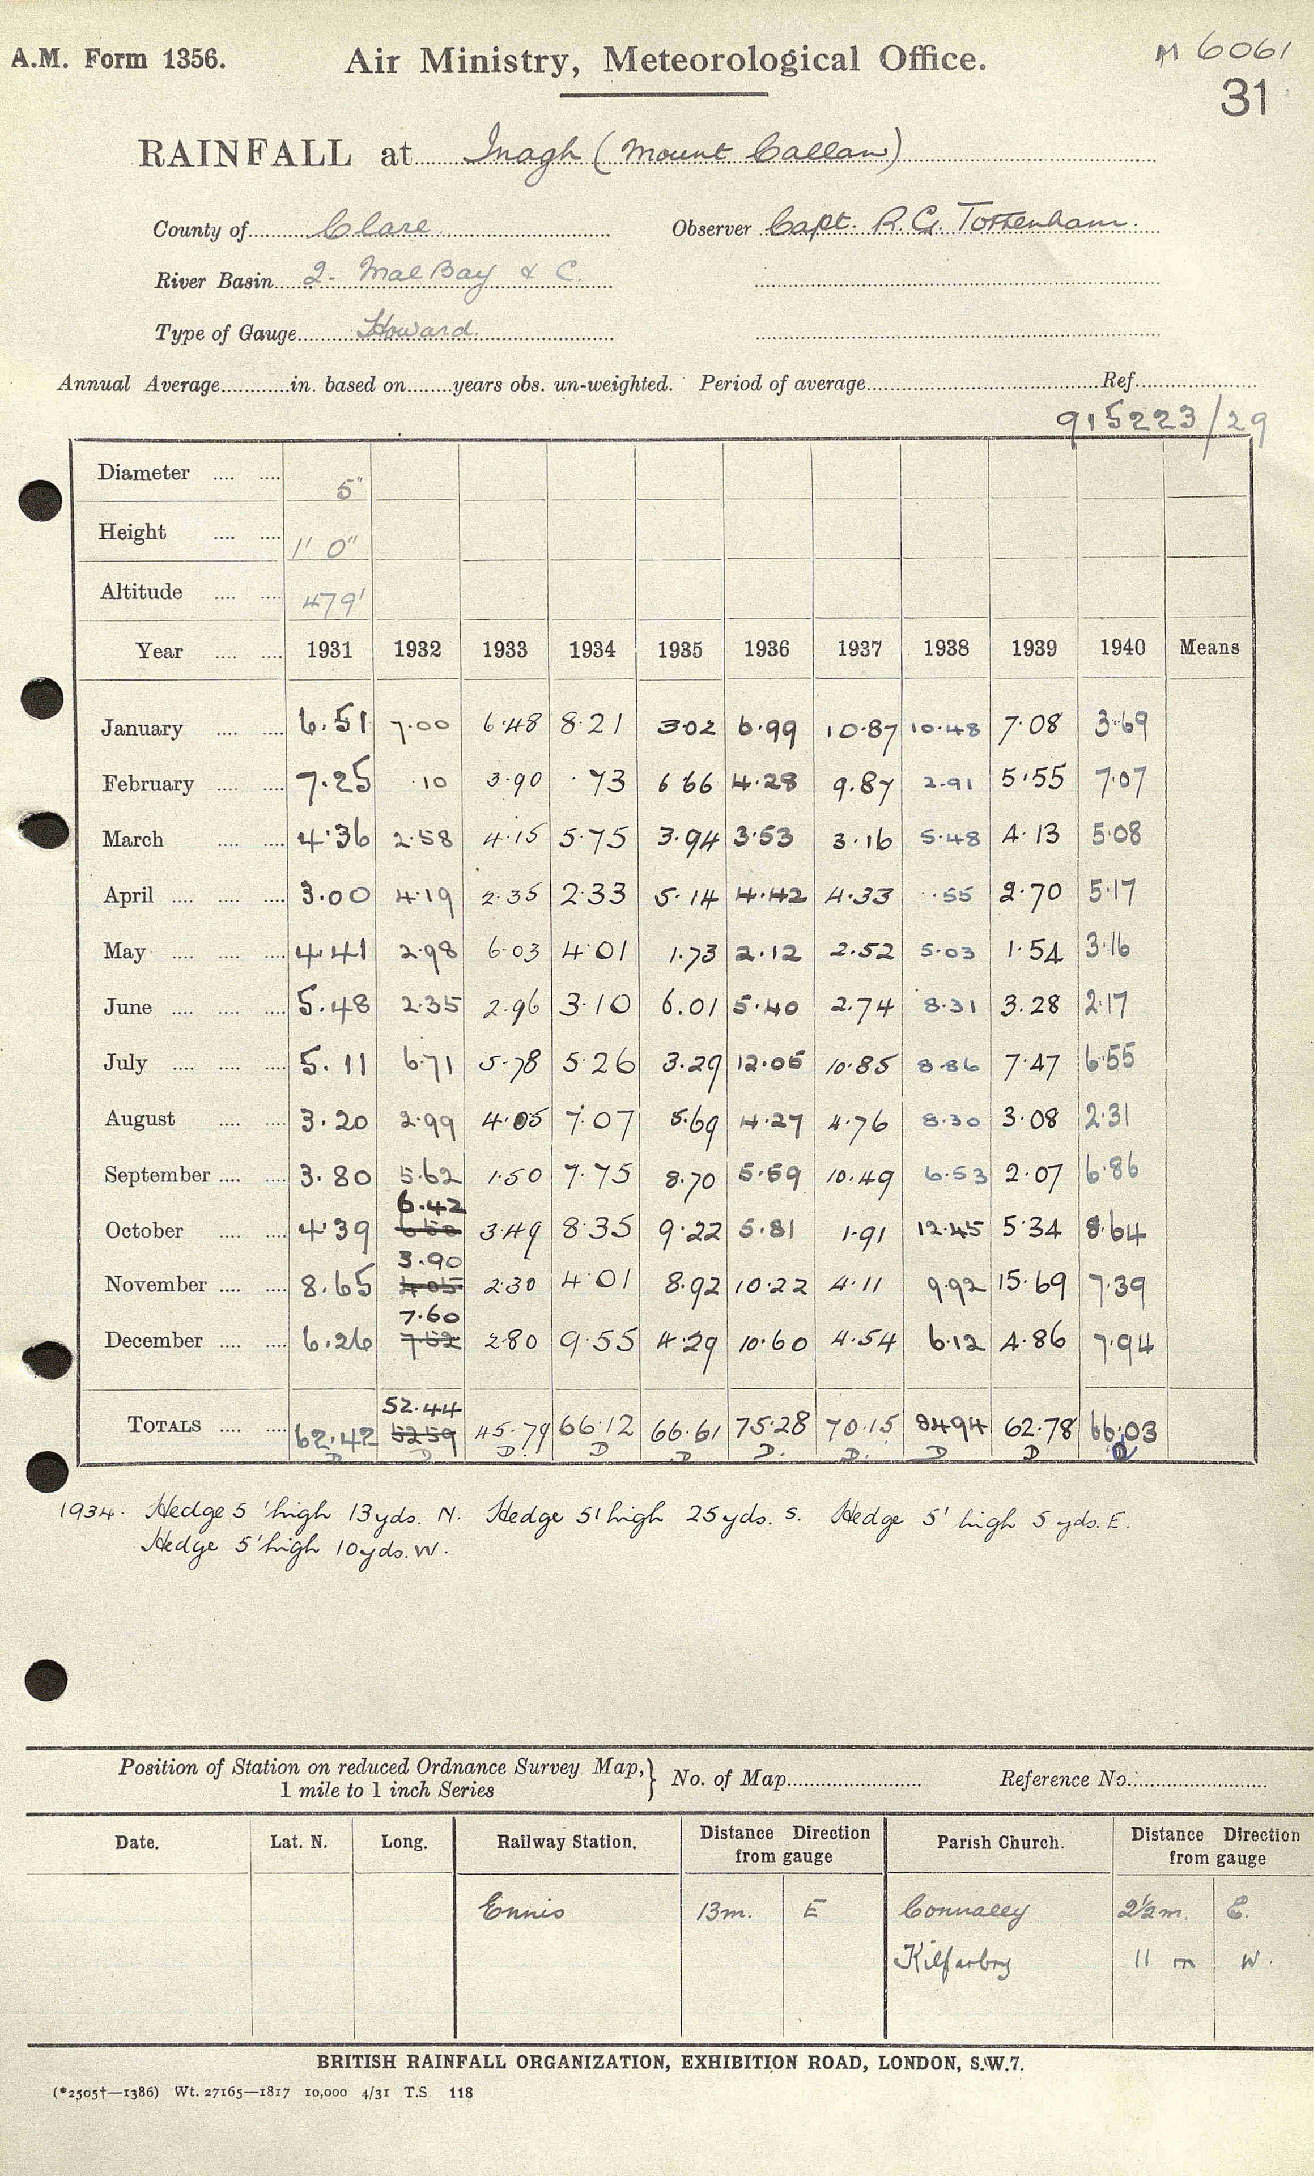 A.M. Form 1356.
Air Ministry, Meteorological Office.
M 6061
31
RAINFALL at Inagh (Mount Callan)
County of Clare Observer Capt. R. G. Tottenham.
River Basin 2. Mal Bay & C.
Type of Gauge Howard.
Annual Average in. based on years obs. un-weighted. Period of average Ref.
915223/29
Diameter 5"
Height 1' 0"
Altitude 479'
Year 1931 1932 1933 1934 1935 1936 1937 1938 1939 1940 Means
January 6.51 7.00 6.48 8.21 3.02 6.99 10.87 10.48 7.08 3.69
February 7.25 .10 3.90 .73 6 66 4.28 9.87 2.91 5.55 7.07
March 4.36 2.58 4.15 5.75 3.94 3.53 3.16 5.48 4.13 5.08
April 3.00 4.19 2.35 2.33 5.14 4.42 4.33 .55 2.70 5.17
May 4.41 2.98 6.03 4.01 1.73 2.12 2.52 5.03 1.54 3.16
June 5.48 2.35 2.96 3.10 6.01 5.40 2.74 8.31 3.28 2.17
July 5.11 6.71 5.78 5.26 3.29 12.05 10.85 8.86 7.47 6.55
August 3.20 2.99 4.05 7.07 5.69 4.27 4.76 8.30 3.08 2.31
September 3.80 5.62 1.50 7.75 8.70 5.59 10.49 6.53 2.07 6.86
6.42
October 4.39 6.50 3.49 8.35 9.22 5.81 1.91 12.45 5.34 8.64
3.90
November 8.65 4.05 2.30 4.01 8.92 10.22 4.11 9.92 15.69 7.39
7.60
December 6.26 7.52 2.80 9.55 4.29 10.60 4.54 6.12 4.86 7.94
52.44
TOTALS 62.42 52.59 45.79 66.12 66.61 75.28 70.15 84.94 62.78 66.03
D D D D D D. D. D D D
1934. Hedge 5' high 13 yds. N. Hedge 5' high 25 yds. S. Hedge 5' high 5 yds. E.
Hedge 5' high 10 yds. W.
Position of Station on reduced Ordnance Survey Map, 1 mile to 1 inch Series } No. of Map Reference No.
Date. Lat. N. Long. Railway Station. Distance from gauge Direction Parish Church. Distance from gauge Direction
Ennis 13m. E Connaley 2½m. E.
Kilfarboy 11 m W.
BRITISH RAINFALL ORGANIZATION, EXHIBITION ROAD, LONDON, S.W.7.
(*2505†—1386) Wt. 27165—1817 10,000 4/31 T.S 118